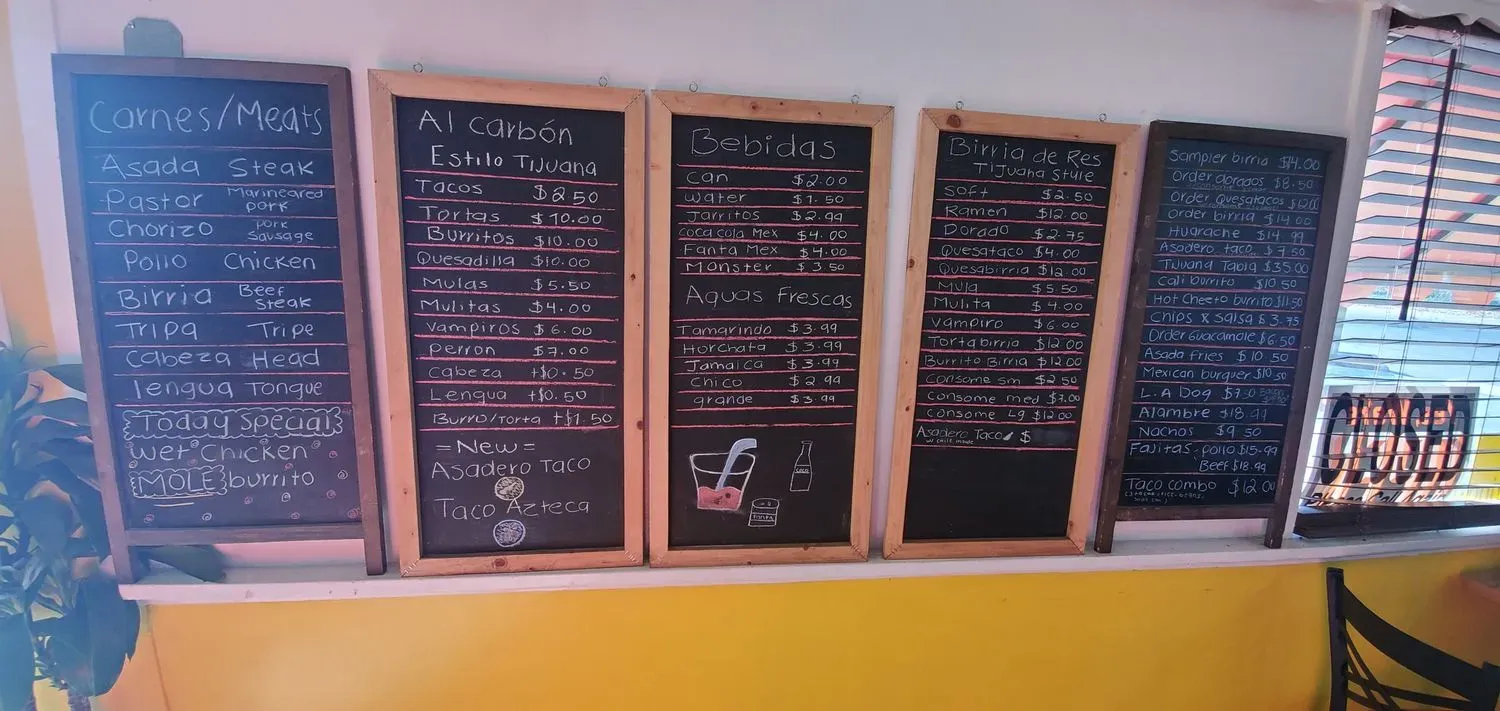 Carnes/Meats
Asada Steak
Pastor Marineared pork
Chorizo pork sausage
Pollo Chicken
Birria Beef Steak
Tripa Tripe
Cabeza Head
lengua Tongue
Today Special
wet Chicken
MOLE burrito
Al Carbón
Estilo Tijuana
Tacos $2.50
Tortas $10.00
Burritos $10.00
Quesadilla $10.00
Mulas $5.50
Mulitas $4.00
Vampiros $6.00
perron $7.00
Cabeza +$0.50
Lengua +$0.50
Burro/torta +$1.50
=New=
Asadero Taco
Taco Azteca
Bebidas
Can $2.00
Water $1.50
Jarritos $2.99
coca cola Mex $4.00
Fanta Mex $4.00
Monster $3.50
Aguas Frescas
Tamarindo $3.99
Horchata $3.99
Jamaica $3.99
Chico $2.99
grande $3.99
Birria de Res
Tijuana Style
Soft $2.50
Ramen $12.00
Dorado $2.75
Quesataco $4.00
Quesabirria $12.00
Mula $5.50
Mulita $4.00
Vampiro $6.00
Torta birria $12.00
Burrito Birria $12.00
Consome sm $2.50
Consome med $7.00
consome Lg $12.00
Asadero Taco $
Sampler birria $14.00
Order dorados $8.50
Order Quesatacos $12.00
Order birria $14.00
Huarache $14.99
Asadero taco.. $7.50
Tijuana Tabla $35.00
Cali burrito $10.50
Hot Cheeto burrito $11.50
Chips & Salsa $3.75
Order Guacamole $6.50
Asada Fries $10.50
Mexican burguer $10.50
L.A Dog $7.50
Alambre $18.99
Nachos $9.50
Fajitas - pollo $15.99
Beef $18.99
Taco combo $12.00